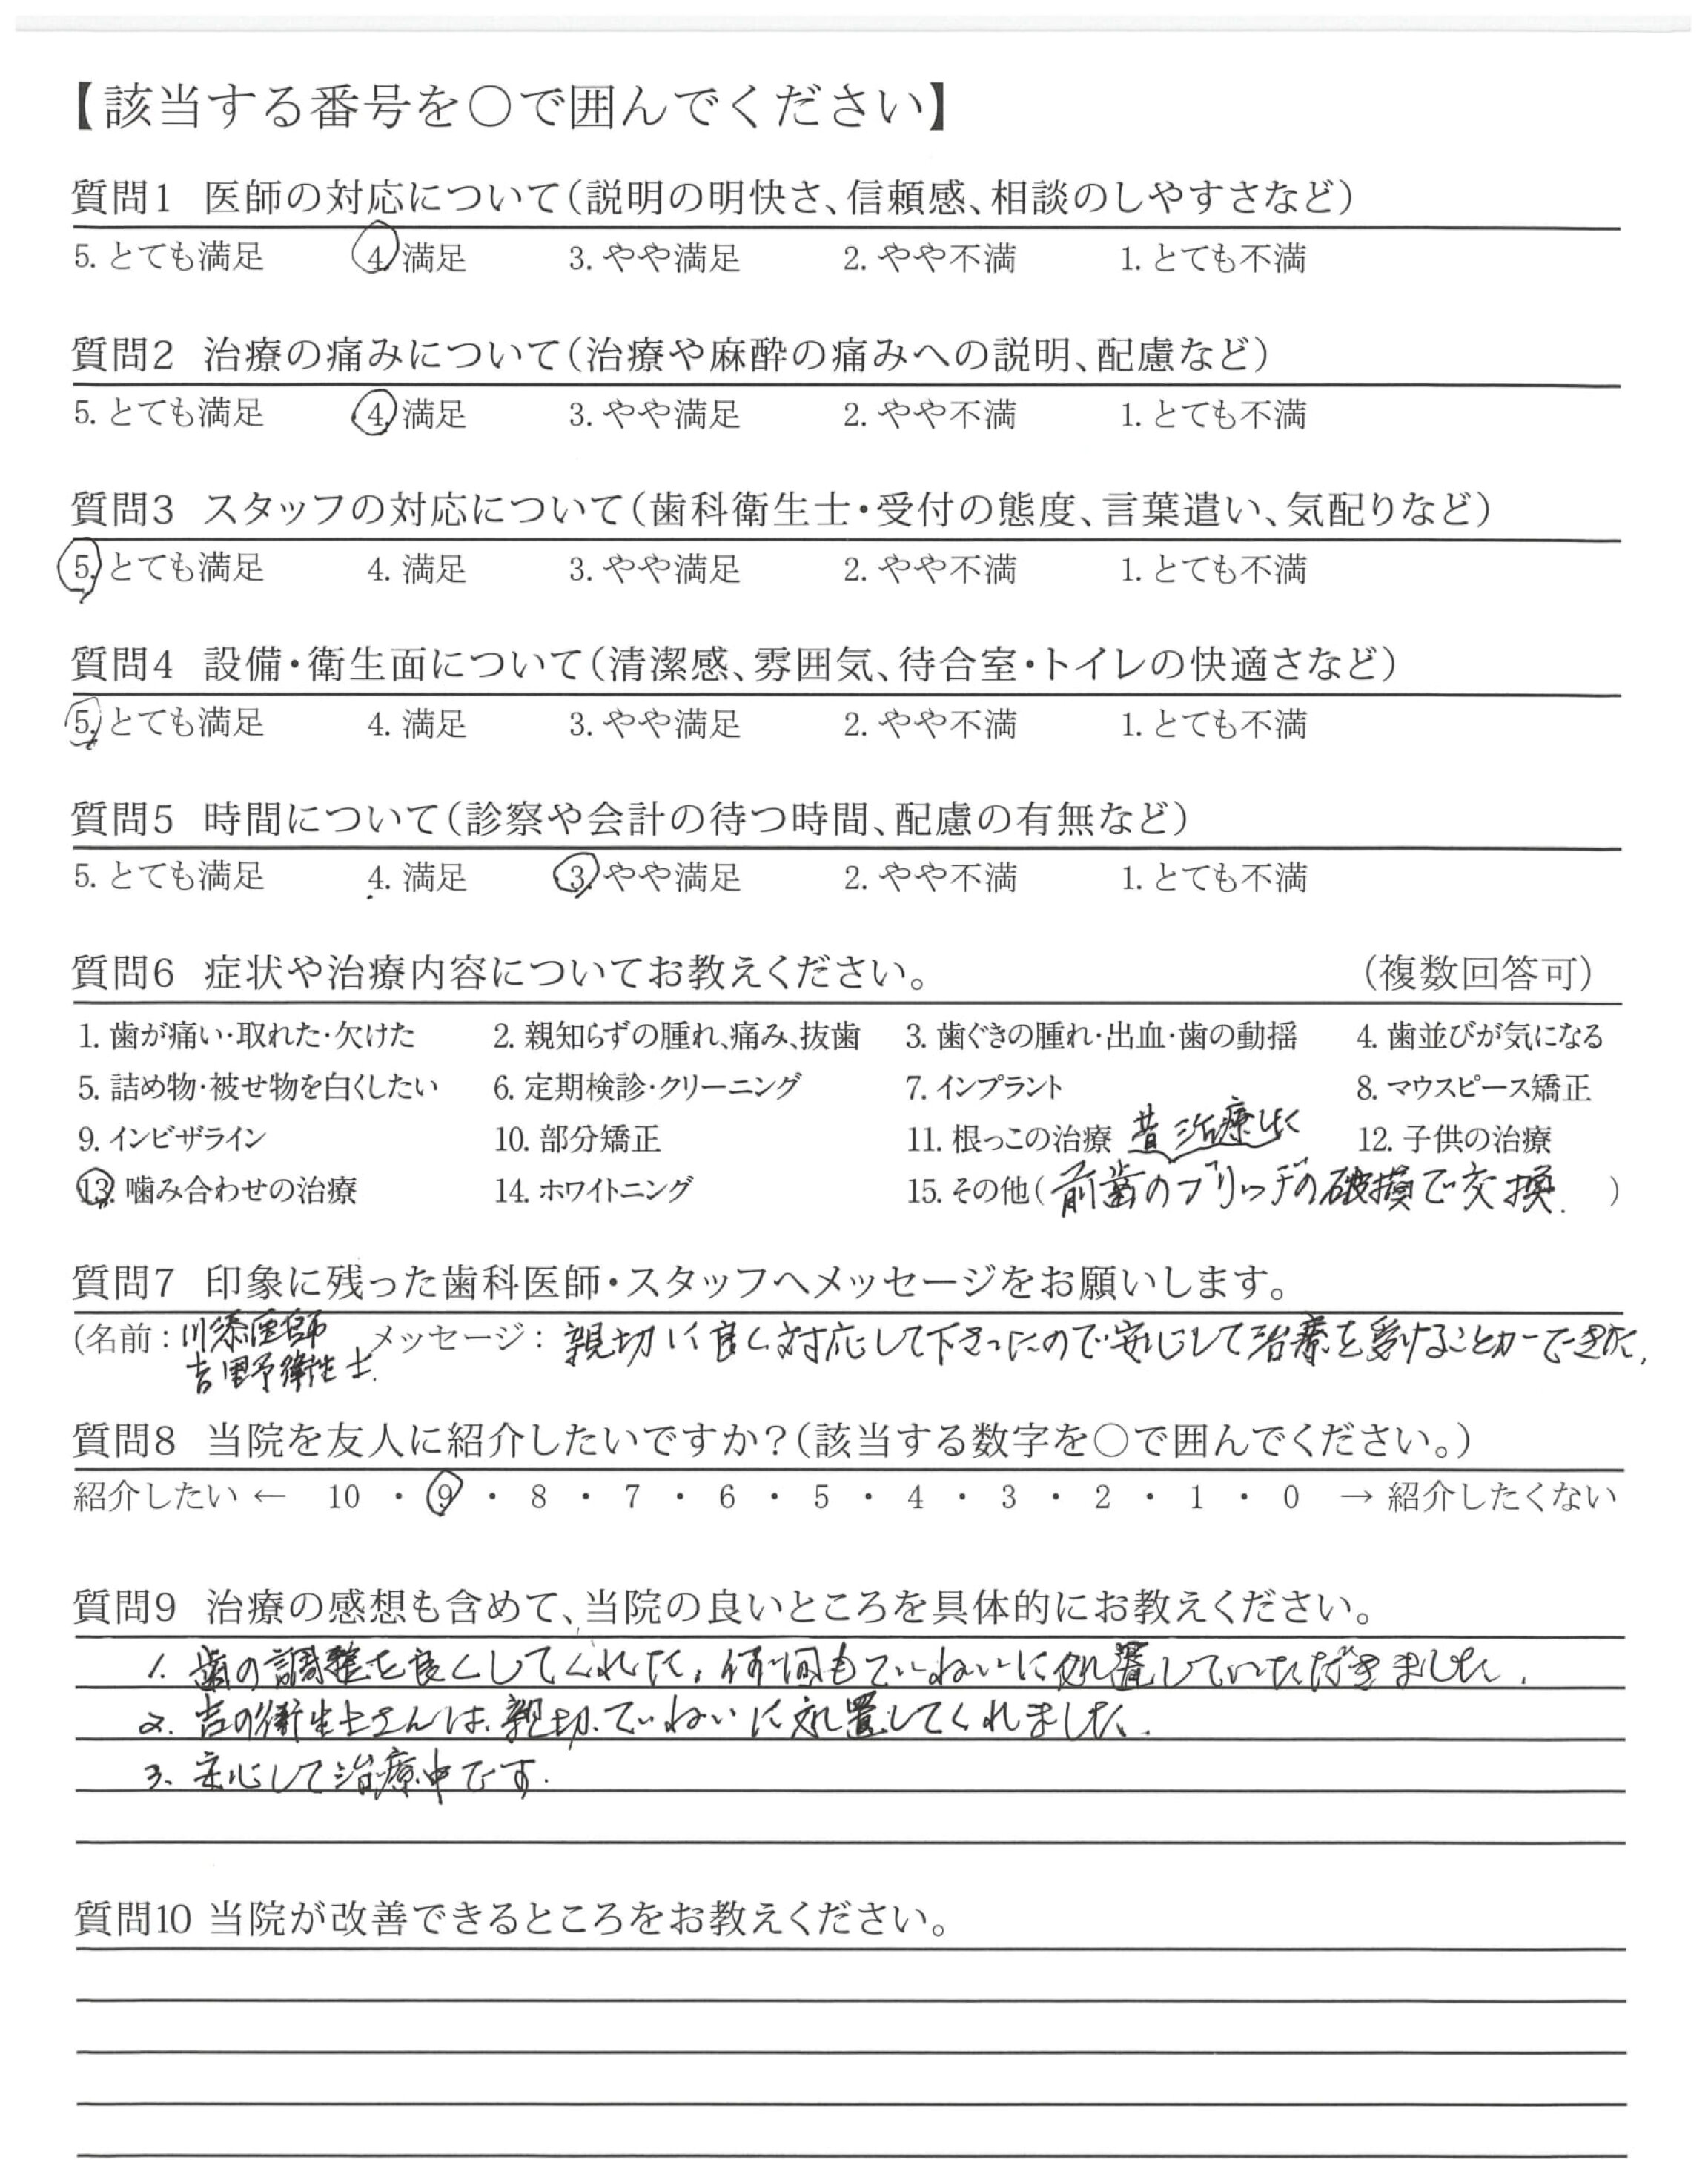 【該当する番号を○で囲んでください】
質問1 医師の対応について(説明の明快さ、信頼感、相談のしやすさなど)
5. とても満足 4. 満足 3. やや満足 2. やや不満 1. とても不満
質問2 治療の痛みについて(治療や麻酔の痛みへの説明、配慮など)
5. とても満足 4. 満足 3. やや満足 2. やや不満 1. とても不満
質問3 スタッフの対応について(歯科衛生士・受付の態度、言葉遣い、気配りなど)
5. とても満足 4. 満足 3. やや満足 2. やや不満 1. とても不満
質問4 設備・衛生面について(清潔感、雰囲気、待合室・トイレの快適さなど)
5. とても満足 4. 満足 3. やや満足 2. やや不満 1. とても不満
質問5 時間について(診察や会計の待つ時間、配慮の有無など)
5. とても満足 4. 満足 3. やや満足 2. やや不満 1. とても不満
質問6 症状や治療内容についてお教えください。 (複数回答可)
1. 歯が痛い・取れた・欠けた 2. 親知らずの腫れ、痛み、抜歯 3. 歯ぐきの腫れ・出血・歯の動揺 4. 歯並びが気になる
5. 詰め物・被せ物を白くしたい 6. 定期検診・クリーニング 7. インプラント 8. マウスピース矯正
9. インビザライン 10. 部分矯正 11. 根っこの治療 昔治療した 12. 子供の治療
13. 噛み合わせの治療 14. ホワイトニング 15. その他(前歯のブリッヂの破損で交換. )
質問7 印象に残った歯科医師・スタッフへメッセージをお願いします。
(名前:川添医師 メッセージ:親切に良く対応して下さったので安心して治療を受けることができた.
吉野衛生士.
質問8 当院を友人に紹介したいですか?(該当する数字を○で囲んでください。)
紹介したい ← 10 ・ 9 ・ 8 ・ 7 ・ 6 ・ 5 ・ 4 ・ 3 ・ 2 ・ 1 ・ 0 → 紹介したくない
質問9 治療の感想も含めて、当院の良いところを具体的にお教えください。
1. 歯の調整を良くしてくれた. 何回もていねいに処置していただきました.
2. 吉の衛生士さんは、親切、ていねいに処置してくれました.
3. 安心して治療中です.
質問10 当院が改善できるところをお教えください。